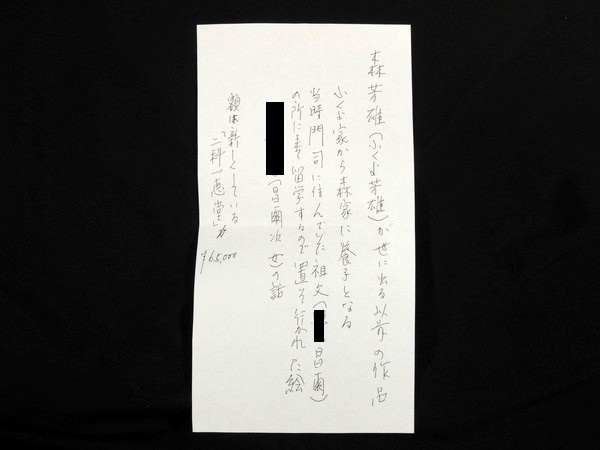 森芳雄(ふくよ芳雄)が世に出る以前の作品
ふくよ家から森家に養子となる
当時門司に住んでいた祖父(昌爾)
の所に来て留学するので置いて行かれた絵
(昌爾次女)の話
額は新しくしている
「二科一恵堂」が
¥65,000